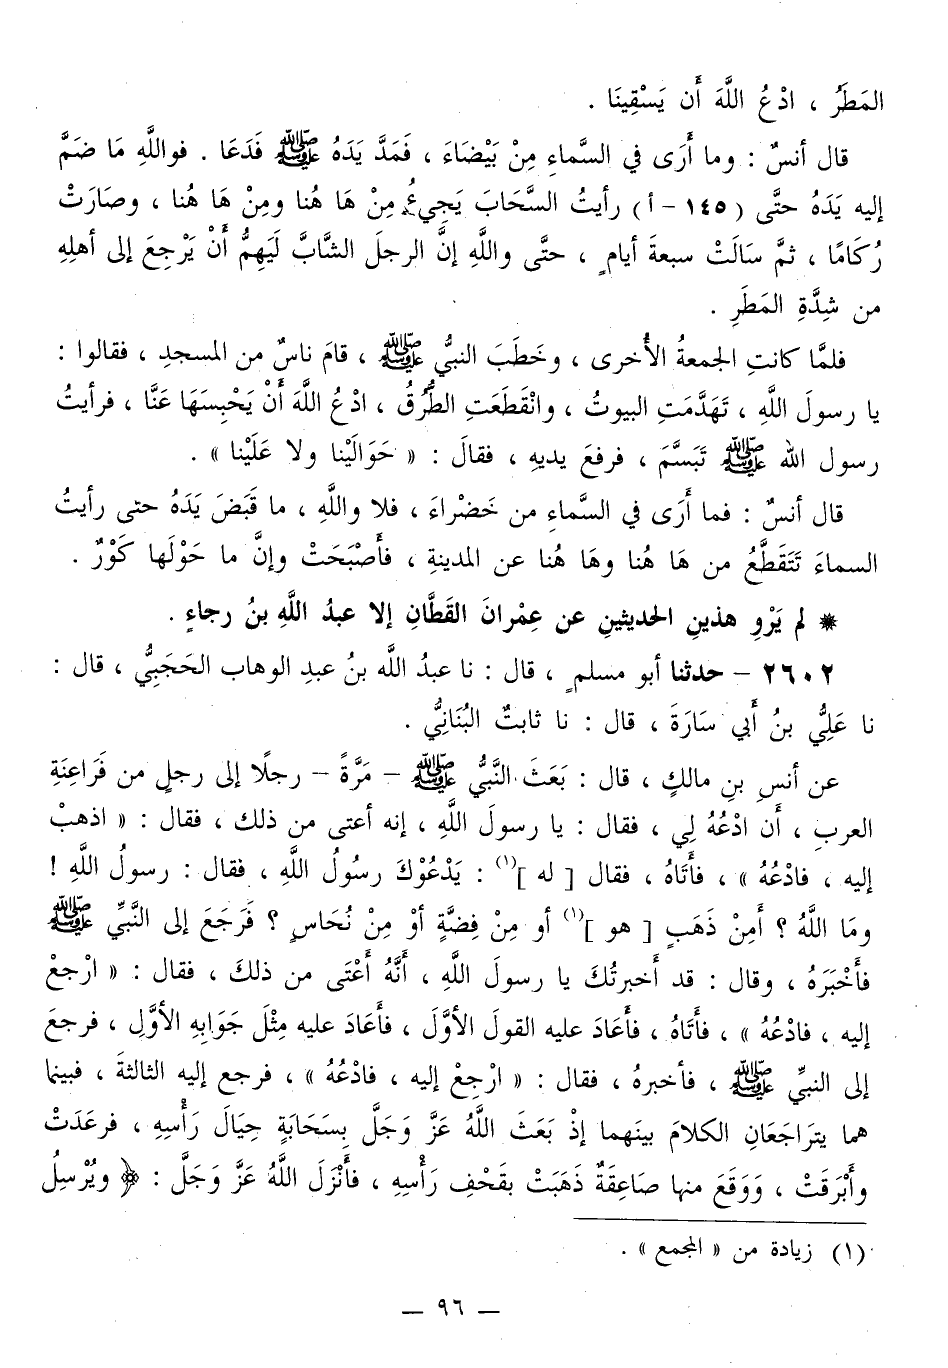 المَطَرُ ، ادْعُ اللَّهَ أَن يَسْقِينَا .
قال أنسٌ : وما أَرَى في السَّماءِ مِنْ بَيْضَاءَ ، فَمَدَّ يَدَهُ ﷺ فَدَعَا . فواللَّهِ مَا ضَمَّ
إليه يَدَهُ حتَّى ( ١٤٥ - أ ) رأيتُ السَّحَابَ يَجِيءُ مِنْ هَا هُنا ومِنْ هَا هُنا ، وصَارَتْ
رُكَامًا ، ثمَّ سَالَتْ سبعةَ أيامٍ ، حتَّى واللَّهِ إنَّ الرجلَ الشَّابَّ لَيَهِمُّ أَنْ يَرْجِعَ إلى أهلِهِ
من شِدَّةِ المَطَرِ .
فلمَّا كانتِ الجمعةُ الأُخرى ، وخَطَبَ النبيُّ ﷺ ، قامَ ناسٌ من المسجدِ ، فقالوا :
يا رسولَ اللَّهِ ، تَهَدَّمَتِ البيوتُ ، وانْقَطَعَتِ الطُّرُقُ ، ادْعُ اللَّهَ أَنْ يَحْبِسَهَا عَنَّا ، فرأيتُ
رسول الله ﷺ تَبَسَّمَ ، فرفعَ يديهِ ، فقالَ : « حَوَالَيْنا ولا عَلَيْنا » .
قال أنسٌ : فما أَرَى في السَّماءِ من خَضْراءَ ، فلا واللَّهِ ، ما قَبَضَ يَدَهُ حتى رأيتُ
السماءَ تَتَقَطَّعُ من هَا هُنا وهَا هُنا عن المدينةِ ، فأَصْبَحَتْ وإنَّ ما حَوْلَها كَوْرٌ .
* لم يَرْوِ هذينِ الحديثينِ عن عِمْرانَ القَطَّانِ إلا عبدُ اللَّهِ بنُ رجاءٍ .
٢٦٠٢ - حدثنا أبو مسلمٍ ، قال : نا عبدُ اللَّه بنُ عبدِ الوهاب الحَجَبِيُّ ، قال :
نا عَلِيُّ بنُ أَبي سَارَةَ ، قال : نا ثابتٌ البُنَانِيُّ .
عن أنسِ بنِ مالكٍ ، قال : بَعَثَ النَّبِيُّ ﷺ - مَرَّةً - رجلًا إلى رجلٍ من فَرَاعِنَةِ
العربِ ، أَن ادْعُهُ لِي ، فقال : يا رسولَ اللَّهِ ، إنه أعتى من ذلك ، فقال : « اذهبْ
إليه ، فادْعُهُ » ، فأَتَاهُ ، فقال [ له ](١) : يَدْعُوْكَ رسُولُ اللَّهِ ، فقال : رسولُ اللَّهِ !
ومَا اللَّهُ ؟ أَمِنْ ذَهَبٍ [ هو ](١) أو مِنْ فِضَّةٍ أوْ مِنْ نُحَاسٍ ؟ فَرَجَعَ إلى النَّبيِّ ﷺ
فأَخْبَرَهُ ، وقال : قد أَخبرتُكَ يا رسولَ اللَّهِ ، أَنَّهُ أَعْتَى من ذلكَ ، فقال : « ارْجعْ
إليه ، فادْعُهُ » ، فأَتَاهُ ، فأَعَادَ عليه القولَ الأوَّلَ ، فأَعَادَ عليه مِثْلَ جَوَابِهِ الأوَّلِ ، فرجعَ
إلى النبيِّ ﷺ ، فأخبرهُ ، فقال : « ارْجِعْ إليه ، فادْعُهُ » ، فرجع إليه الثالثةَ ، فبينما
هما يتراجَعَانِ الكلامَ بينَهما إذْ بَعَثَ اللَّهُ عَزَّ وَجَلَّ بِسَحَابَةٍ حِيَالَ رَأْسِهِ ، فرعَدَتْ
وأَبْرَقتْ ، ووَقَعَ منها صَاعِقَةٌ ذَهَبَتْ بقَحْفِ رَأْسِهِ ، فأَنْزَلَ اللَّهُ عَزَّ وَجَلَّ : ﴿ ويُرْسِلُ
(١) زيادة من « المجمع » .
— ٩٦ —